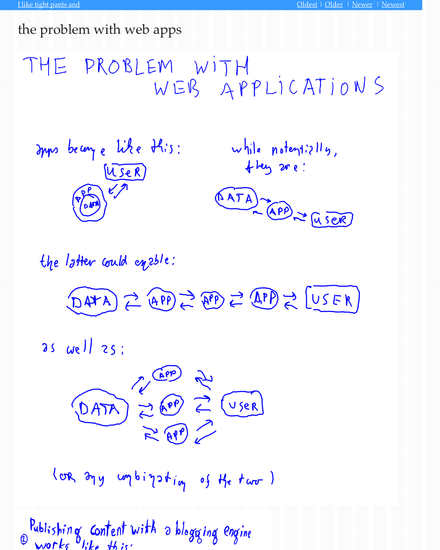 I like tight pants and
Oldest | Older | Newer | Newest
the problem with web apps
THE PROBLEM WITH
WEB APPLICATIONS
apps become like this:
while potentially,
they are:
USER
APP
DATA
DATA
APP
USER
the latter could enable:
DATA APP APP APP USER
as well as:
APP
DATA APP USER
APP
(or any combination of the two)
Publishing content with a blogging engine
works like this: